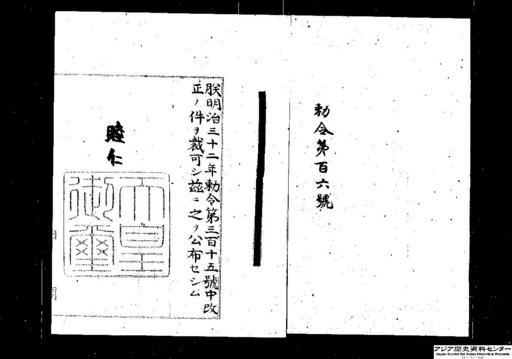 勅令第百六號
朕明治三十二年勅令第三百十五號中改
正ノ件ヲ裁可シ茲ニ之ヲ公布セシム
睦仁
天皇
御璽
内
閣
アジア歴史資料センター
Japan Center for Asian Historical Records